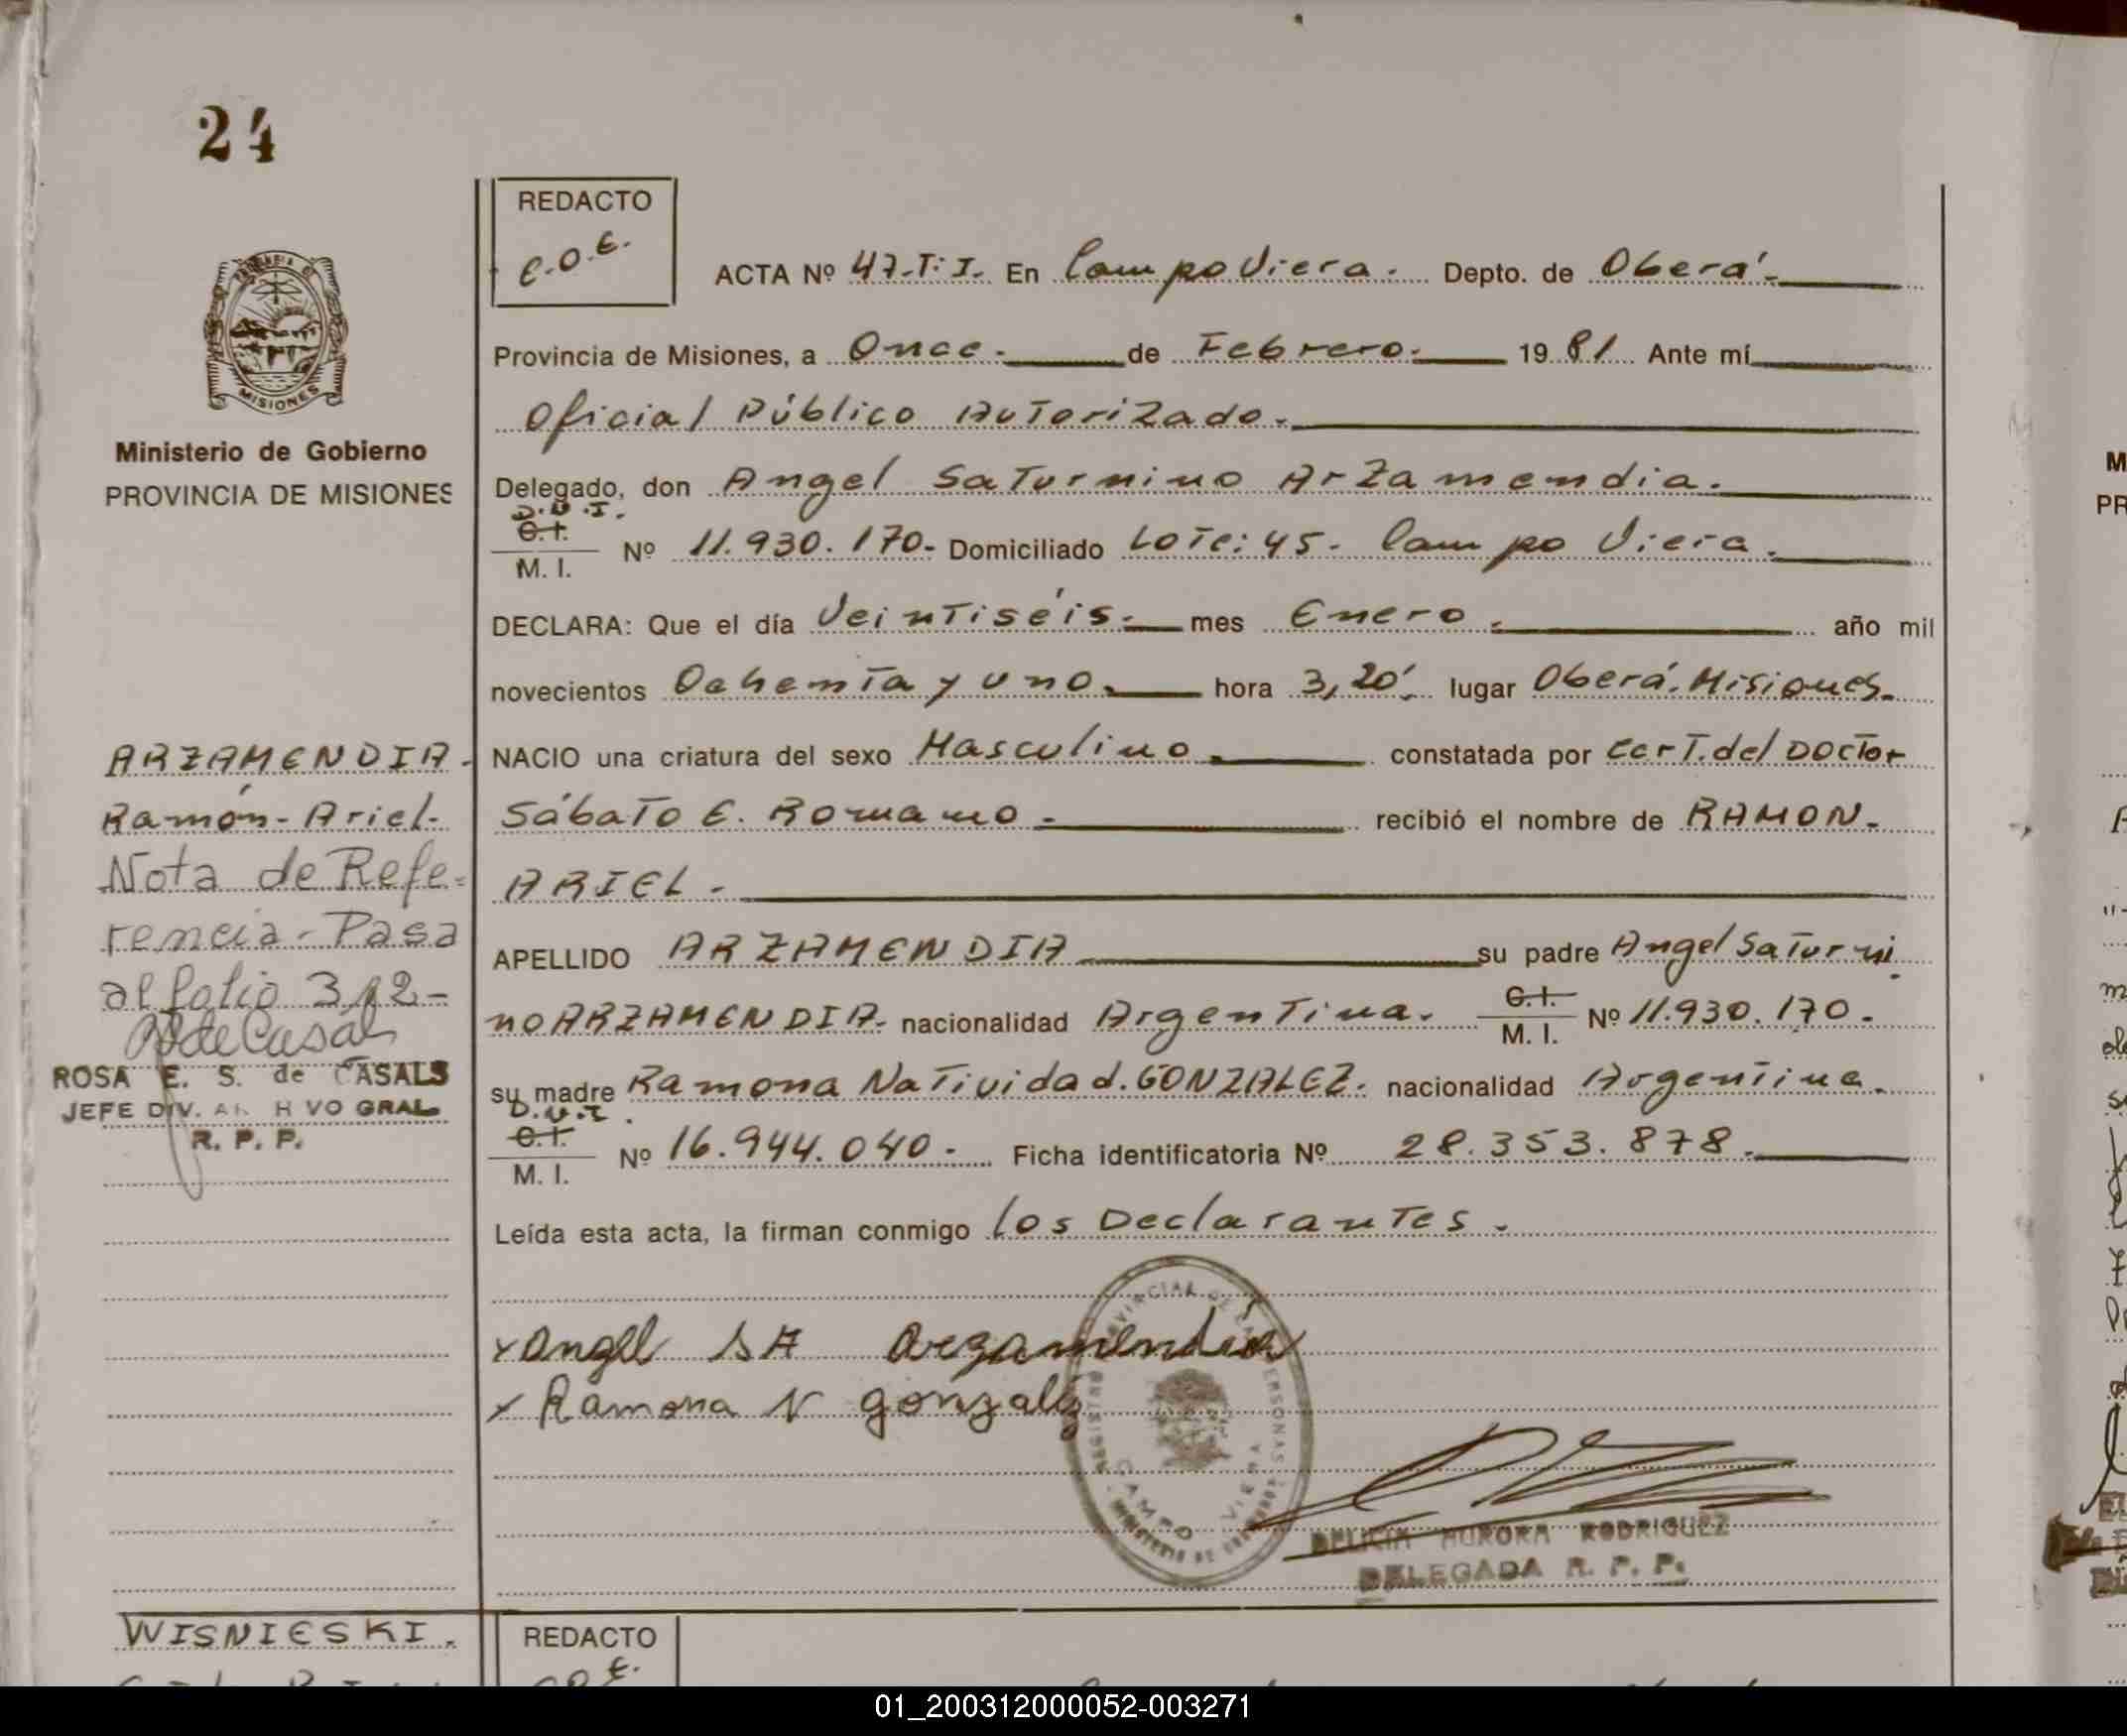 24
REDACTO
C.O.E.
ACTA Nº 47.T.I. En Campo Viera. Depto. de Oberá.
Provincia de Misiones, a Once. de Febrero. 1981 Ante mí
Oficial Público Autorizado.
Ministerio de Gobierno
PROVINCIA DE MISIONES
MISIONES
Delegado, don Angel Saturnino Arzamendia.
D.N.I.
C.I.
M. I.
Nº 11.930.170. Domiciliado Lote: 45. Campo Viera.
DECLARA: Que el día Veintiséis. mes Enero. año mil
novecientos Ochenta y uno. hora 3,20'. lugar Oberá. Misiones.
ARZAMENDIA.
Ramón-Ariel.
Nota de Refe-
rencia. Pasa
al folio 312-
ROSA E. S. de CASALS
JEFE DIV. ARCHIVO GRAL.
R. P. P.
NACIO una criatura del sexo Masculino. constatada por Cert. del Doctor
Sábato E. Romano. recibió el nombre de RAMON.
ARIEL.
APELLIDO ARZAMENDIA su padre Angel Saturni
no ARZAMENDIA. nacionalidad Argentina. C.I. M. I. Nº 11.930.170.
su madre Ramona Natividad. GONZALEZ. nacionalidad Argentina.
D.N.I.
C.I.
M. I.
Nº 16.944.040. Ficha identificatoria Nº 28.353.878.
Leída esta acta, la firman conmigo los Declarantes.
x Angel SA Arzamendia
x Ramona N gonzalez
CAMPO VIERA
DELICIA AURORA RODRIGUEZ
DELEGADA R. P. P.
WISNIESKI.
REDACTO
01_200312000052-003271